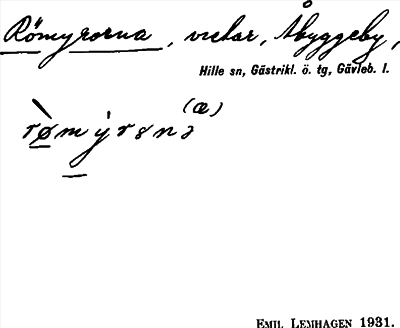 Römyrorna, vretar, Åbyggeby,
Hille sn, Gästrikl. ö. tg, Gävleb. l.
(æ)
EMIL LEMHAGEN 1931.